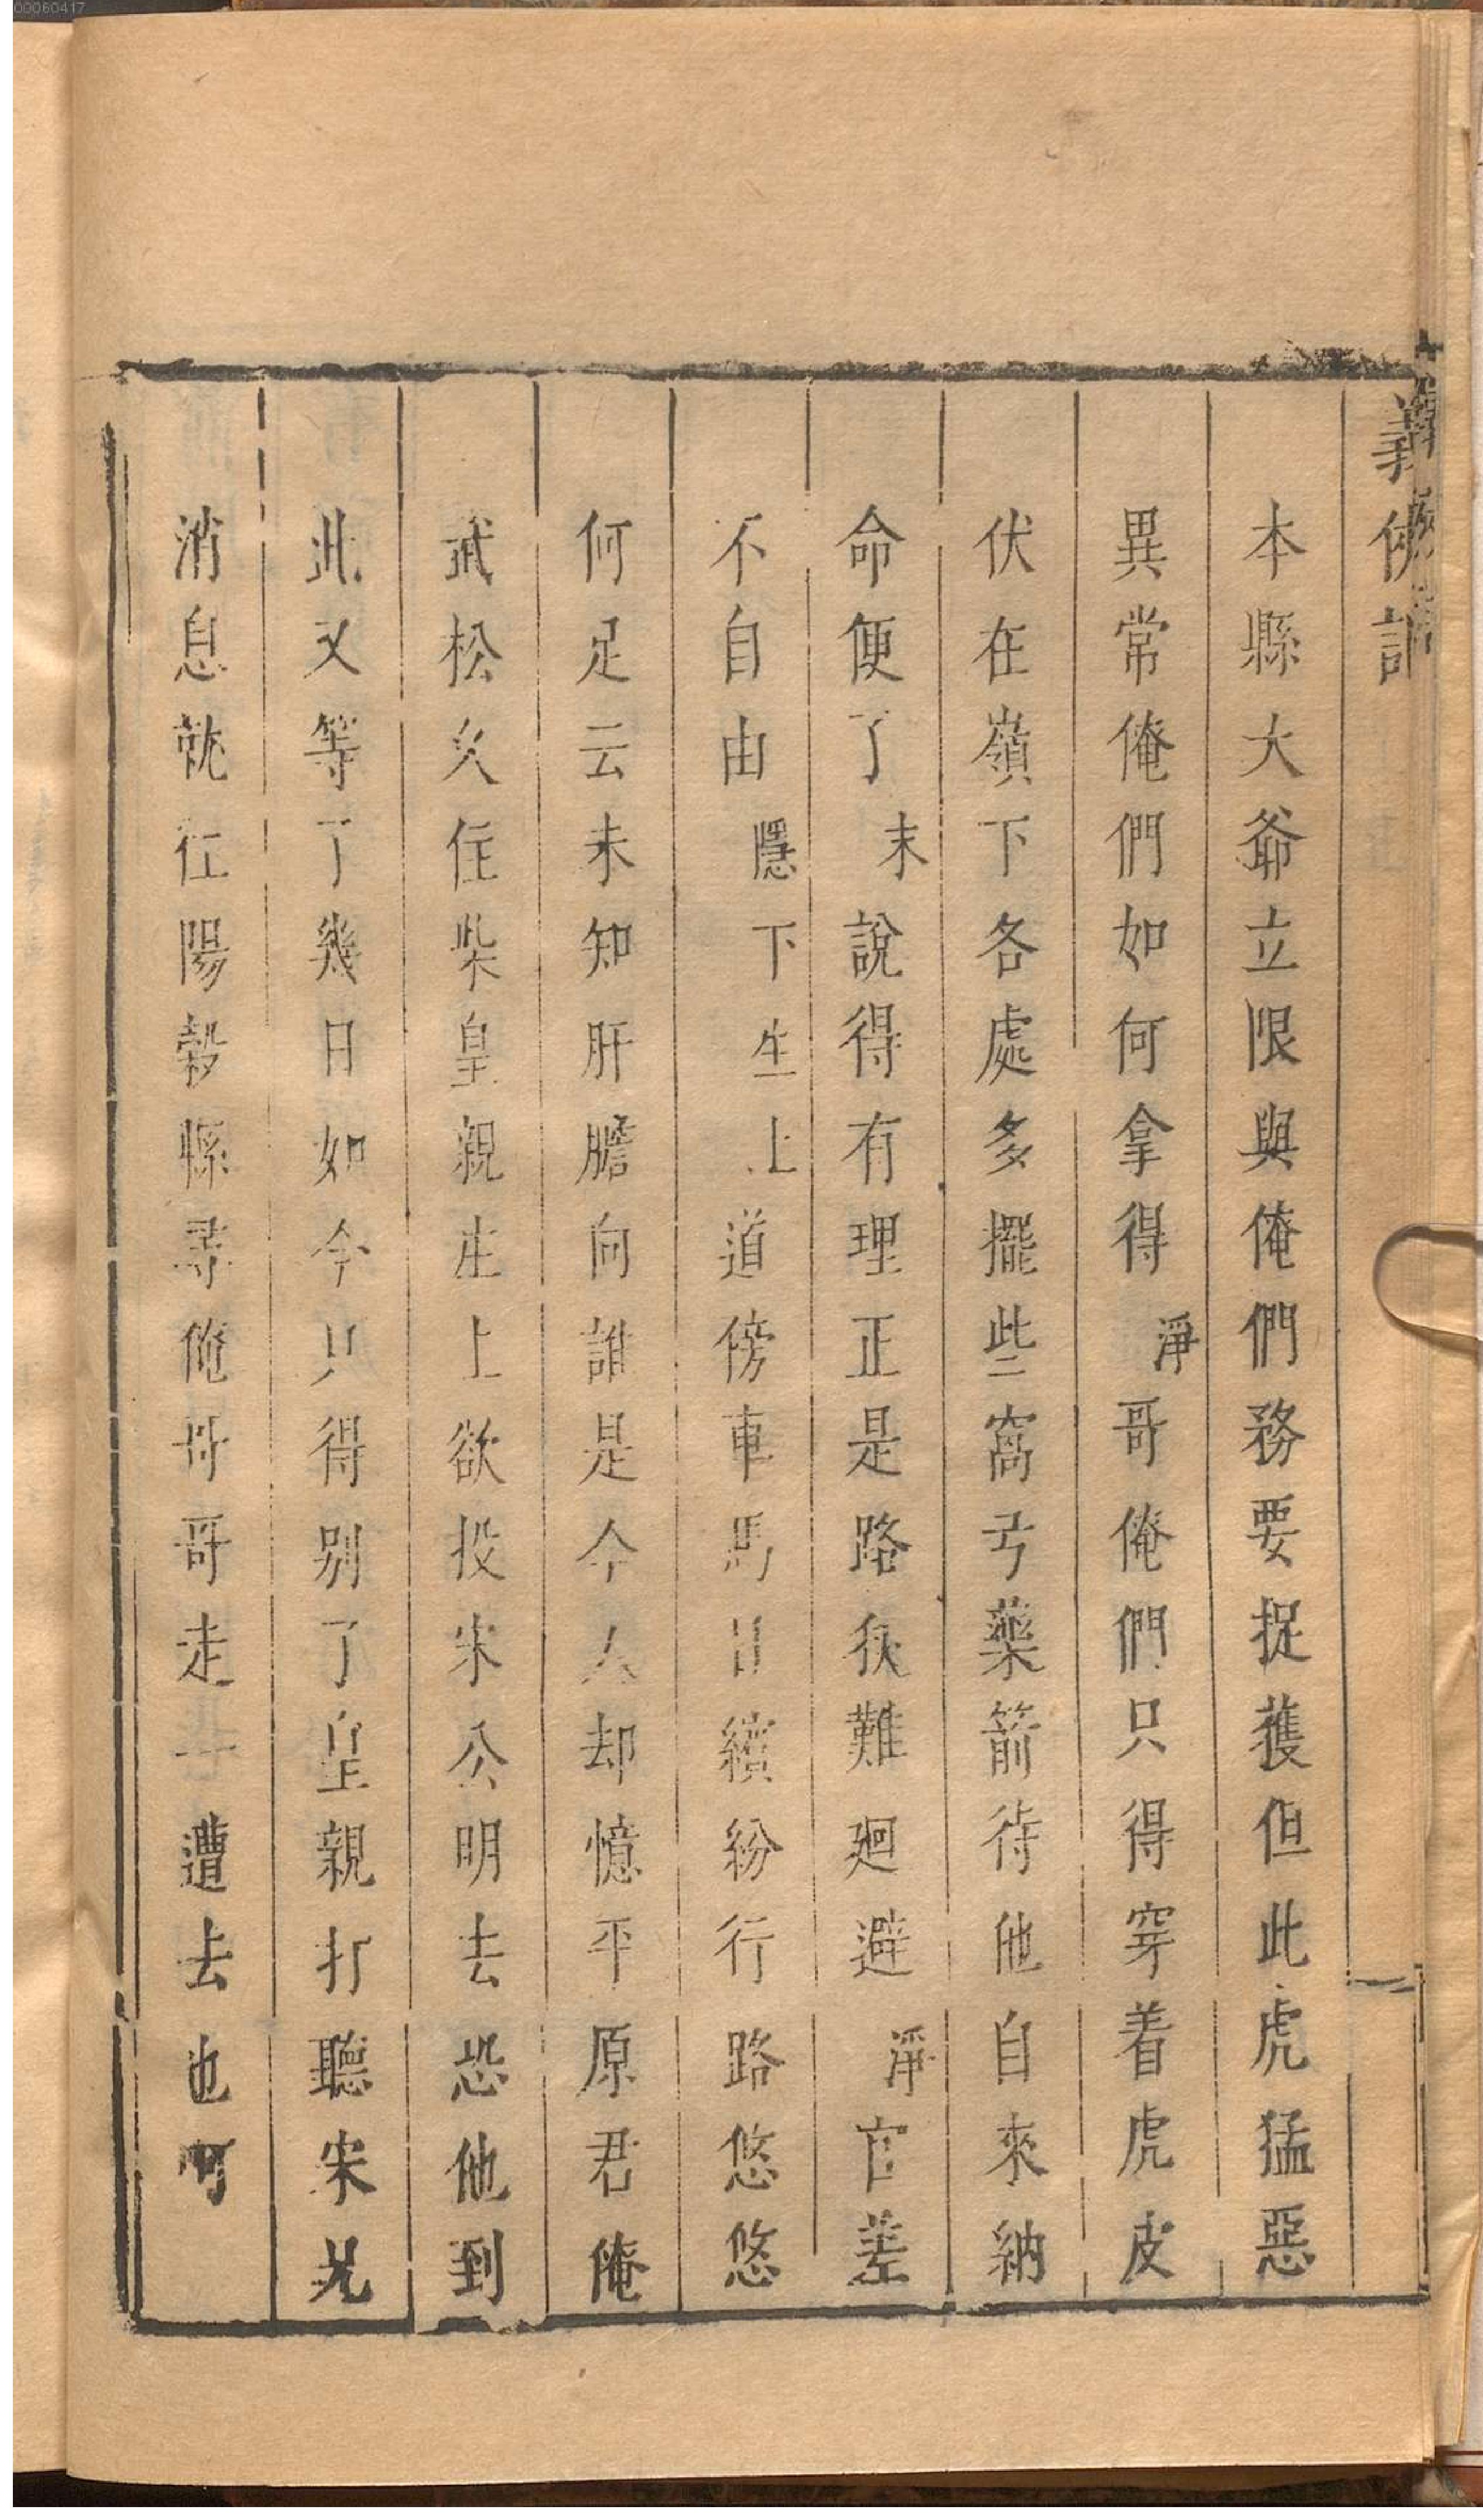 義俠記
本縣大爺立限與俺們務要捉獲但此虎猛惡
異常俺們如何拿得淨哥俺們只得穿着虎皮
伏在嶺下各處多擺些窩弓藥箭待他自來納
命便了末說得有理正是路狹難廻避淨官差
不自由隱下生上道傍車馬日繽紛行路悠悠
何足云未知肝膽向誰是令人却憶平原君俺
武松久住柴皇親庄上欲投宋公明去恐他到
此又等了幾日如今只得别了皇親打聽宋兄
消息就往陽穀縣尋俺哥哥走一遭去也呵
00060417